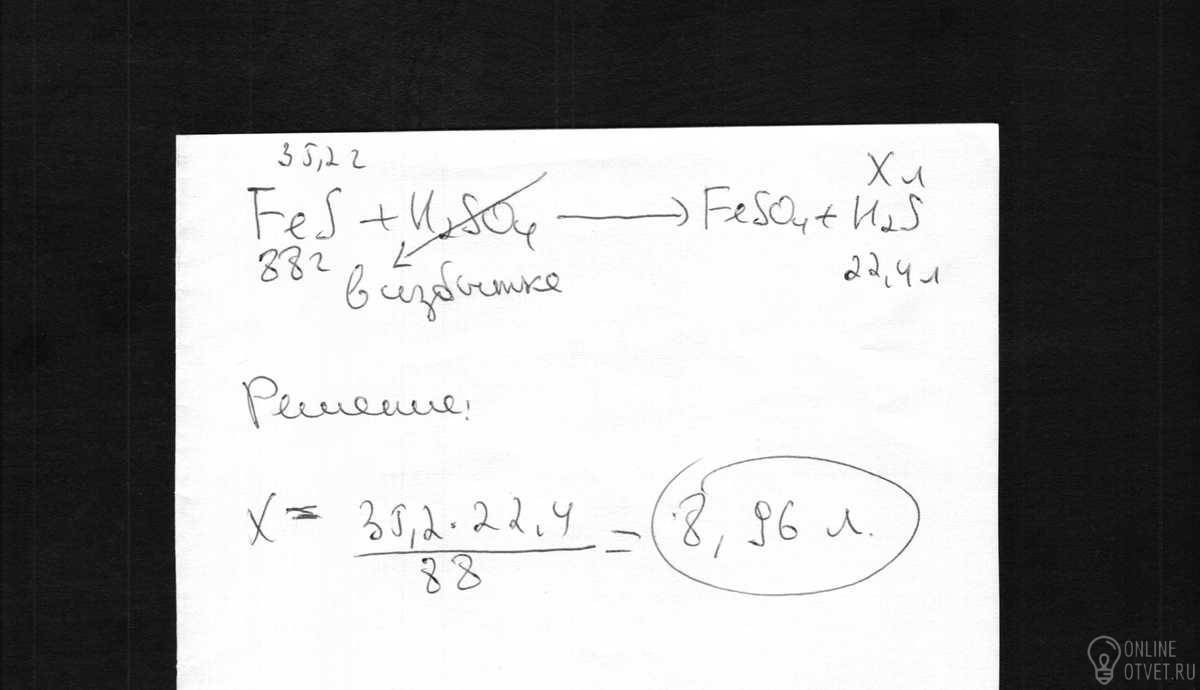 35,2 г
X л
FeS + H₂SO₄ ⟶ FeSO₄ + H₂S
88 г
22,4 л
в избытке
Решение:
X = 35,2 · 22,4 / 88 = 8,96 л.
ONLINE
OTVET.RU